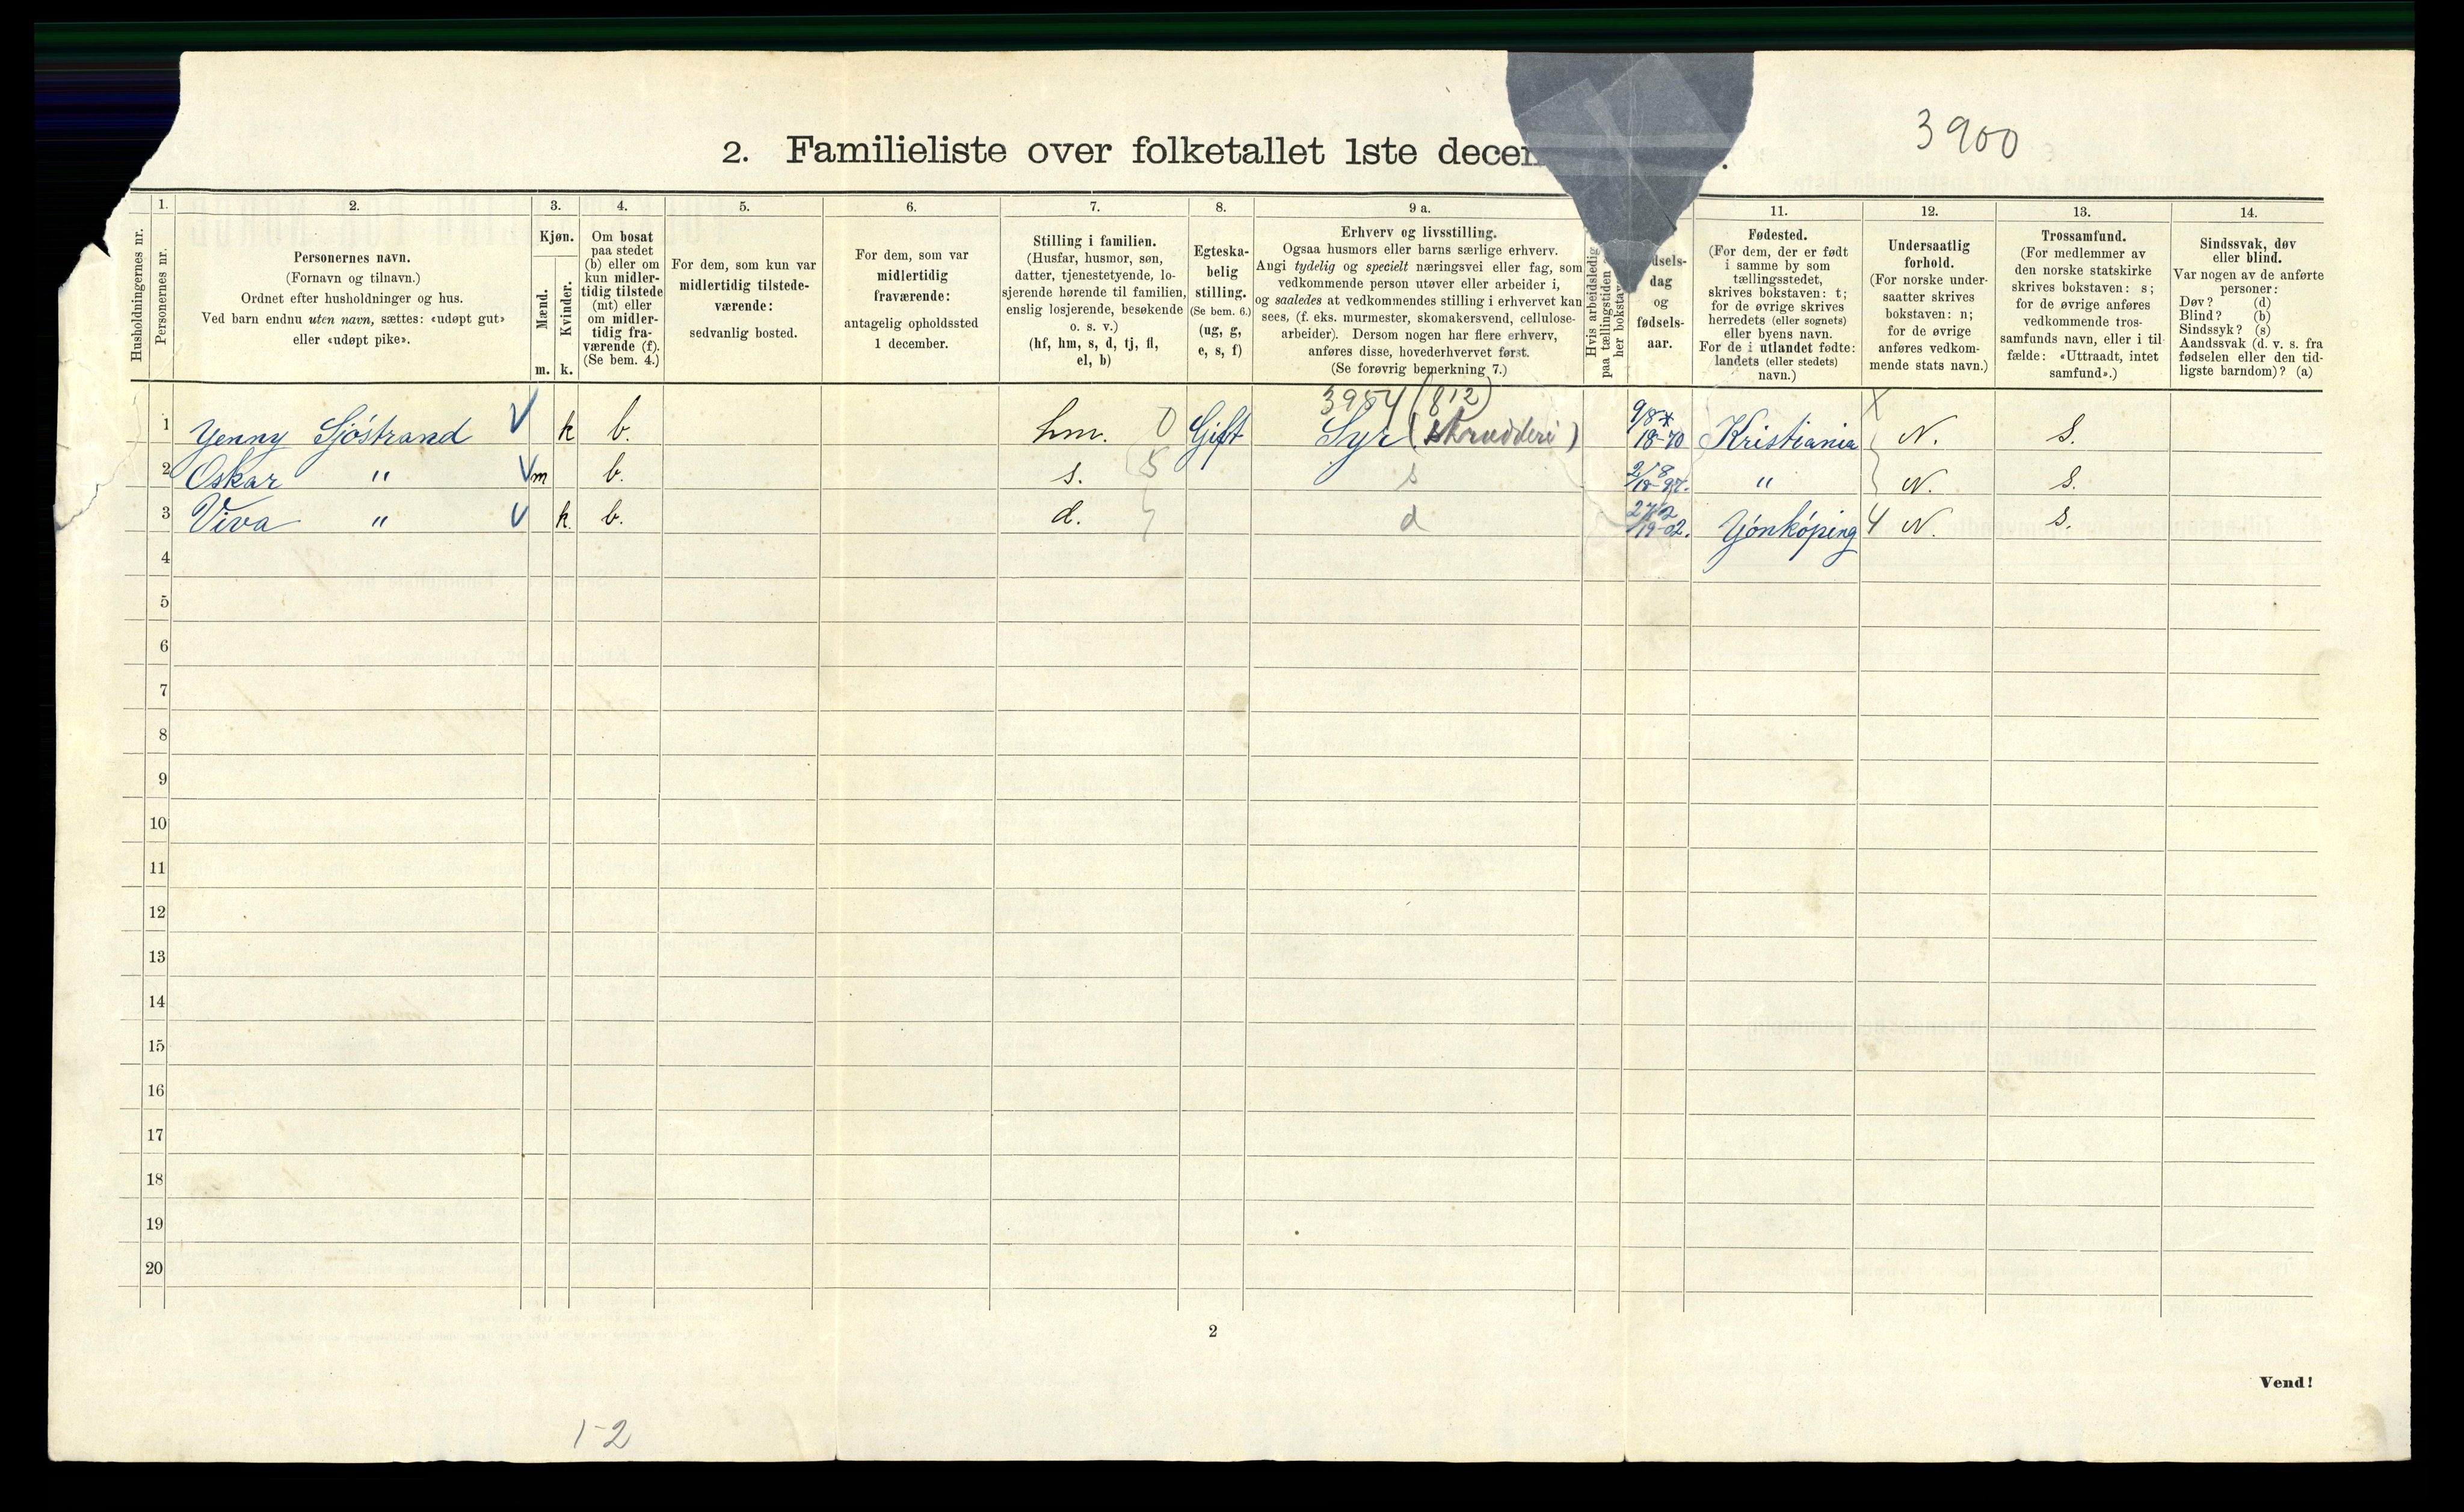 3900
2. Familieliste over folketallet 1ste decem
1.
2.
3.
4.
5.
6.
7.
8.
9 a.
11.
12.
13.
14.
Husholdningernes nr.
Personernes nr.
Personernes navn.
(Fornavn og tilnavn.)
Ordnet efter husholdninger og hus.
Ved barn endnu uten navn, sættes: «udøpt gut»
eller «udøpt pike».
Kjøn.
Mænd.
Kvinder.
m. k.
Om bosat
paa stedet
(b) eller om
kun midler-
tidig tilstede
(mt) eller
om midler-
tidig fra-
værende (f).
(Se bem. 4.)
For dem, som kun var
midlertidig tilstede-
værende:
sedvanlig bosted.
For dem, som var
midlertidig
fraværende:
antagelig opholdssted
1 december.
Stilling i familien.
(Husfar, husmor, søn,
datter, tjenestetyende, lo-
sjerende hørende til familien,
enslig losjerende, besøkende
o. s. v.)
(hf, hm, s, d, tj, fl,
el, b)
Egteska-
belig
stilling.
(Se bem. 6.)
(ug, g,
e, s, f)
Erhverv og livsstilling.
Ogsaa husmors eller barns særlige erhverv.
Angi tydelig og specielt næringsvei eller fag, som
vedkommende person utøver eller arbeider i,
og saaledes at vedkommendes stilling i erhvervet kan
sees, (f. eks. murmester, skomakersvend, cellulose-
arbeider). Dersom nogen har flere erhverv,
anføres disse, hovederhvervet først.
(Se forøvrig bemerkning 7.)
Hvis arbeidsledig
paa tællingstiden
her bokstav
dsels-
dag
og
fødsels-
aar.
Fødested.
(For dem, der er født
i samme by som
tællingsstedet,
skrives bokstaven: t;
for de øvrige skrives
herredets (eller sognets)
eller byens navn.
For de i utlandet fødte:
landets (eller stedets)
navn.)
Undersaatlig
forhold.
(For norske under-
saatter skrives
bokstaven: n;
for de øvrige
anføres vedkom-
mende stats navn.)
Trossamfund.
(For medlemmer av
den norske statskirke
skrives bokstaven: s;
for de øvrige anføres
vedkommende tros-
samfunds navn, eller i til-
fælde: «Uttraadt, intet
samfund».)
Sindssvak, døv
eller blind.
Var nogen av de anførte
personer:
Døv? (d)
Blind? (b)
Sindssyk? (s)
Aandssvak (d. v. s. fra
fødselen eller den tid-
ligste barndom)? (a)
3954 (812)
1 Yenny Sjöstrand k b. hm. 0 Gift Syr (skrædderi) 9/8 18-70 Kristiania N. S.
2 Oskar " m b. s. 5 s 18-97. " N. S.
3 Viva " k. b. d. d 19-02. Yönköping N. S.
4
5
6
7
8
9
10
11
12
13
14
15
16
17
18
19
20
2
Vend!
1-2